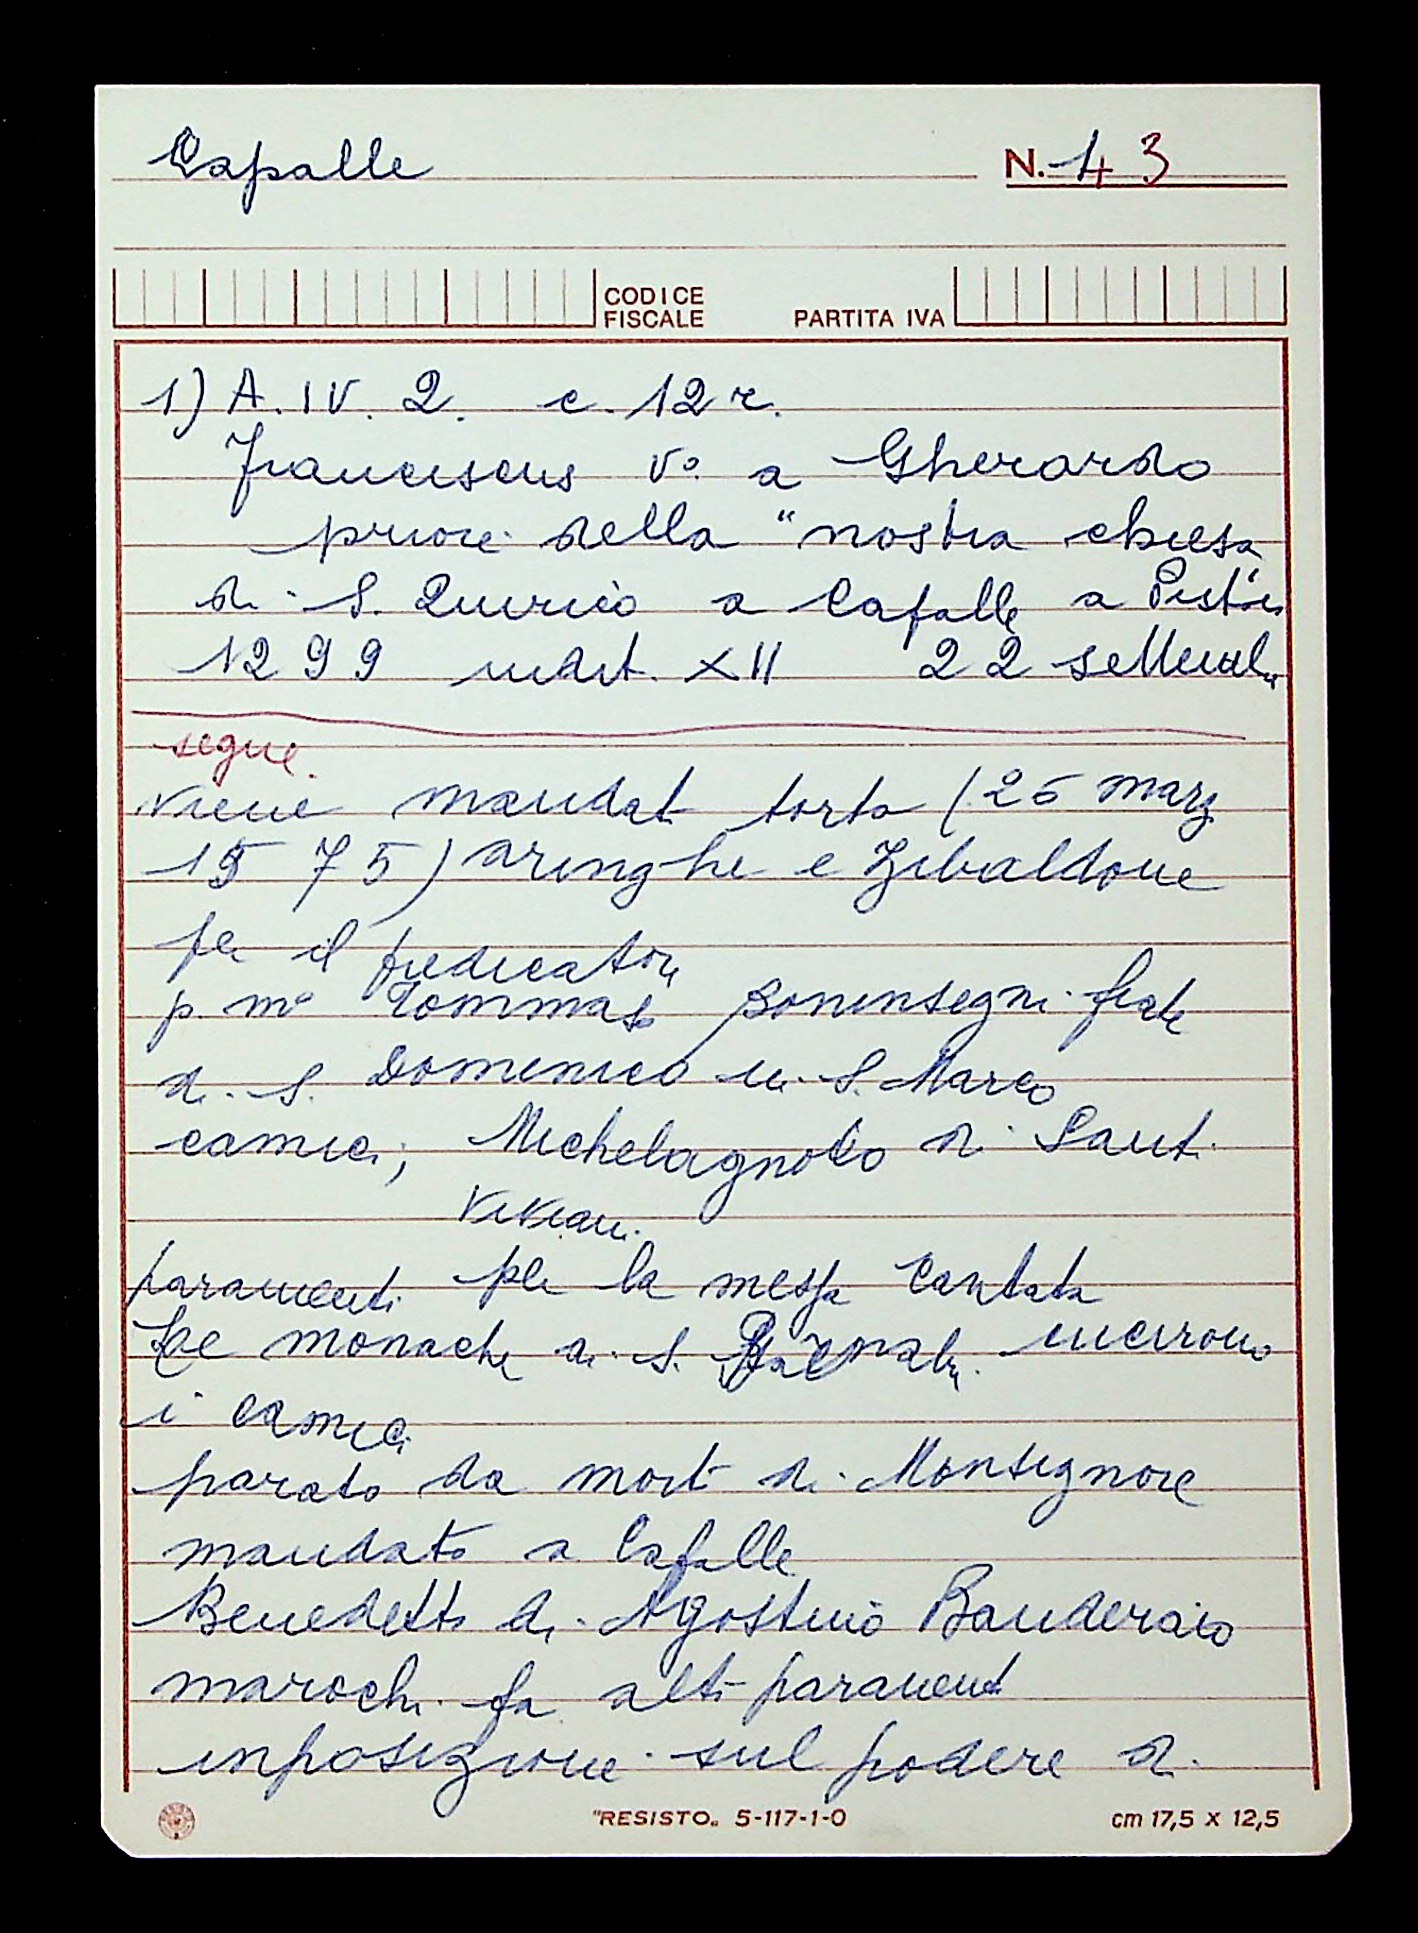 Capalle
N. 43
CODICE
FISCALE
PARTITA IVA
1) A. IV. 2. c. 12 r.
Franciscus Vº. a Gherardo
priore della "nostra chiesa
di S. Quirico a Capalle a
1299 indit. XII 22 settembre
segue.
viene mandat torta (25 marz
1575) aringhe e Zibaldone
per il predicatore
p. mº Tommaso Boninsegni frate
di S. Domenico in S. Marco
camici; Michelagnolo di Santi
Viviani
paramenti per la messa cantata
Le monache di S. cucirono
i camici
parato da morti di Monsignore
mandato a Capalle
Benedetto di Agostino Banderaio
fa alti parament
inposizione sul podere di
"RESISTO" 5-117-1-0
cm 17,5 x 12,5